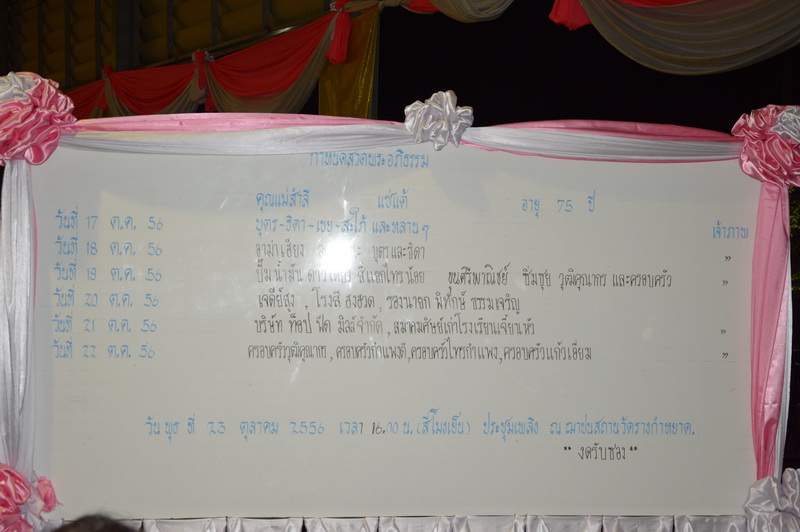 กำหนดสวดพระอภิธรรม
คุณแม่สำลี แซ่แต้ อายุ 75 ปี
วันที่ 17 ต.ค. 56 บุตร-ธิดา-เขย-สะใภ้ และหลานๆ เจ้าภาพ
วันที่ 18 ต.ค. 56 อาม่าเฮียง บุตรและธิดา "
วันที่ 19 ต.ค. 56 ปั๊มน้ำมัน สี่แยกไทรน้อย ขุนศิริพาณิชย์ ชัมชุย วุฒิคุณากร และครอบครัว "
วันที่ 20 ต.ค. 56 เจดีย์สูง , โรงสี ฮงฮวด , รองนายก พิทักษ์ ธรรมเจริญ "
วันที่ 21 ต.ค. 56 บริษัท ท็อป ฟีด มิลล์จำกัด , สมาคมศิษย์เก่าโรงเรียนเจี้ยนหัว "
วันที่ 22 ต.ค. 56 ครอบครัววุฒิคุณากร , ครอบครัวกำแพงดี , ครอบครัวไทรกำแพง , ครอบครัวแก้วเอี่ยม "
วัน พุธ ที่ 23 ตุลาคม 2556 เวลา 16.00 น. (สี่โมงเย็น) ประชุมเพลิง ณ ฌาปนสถานวัดรางกำหยาด.
" งดรับซอง "